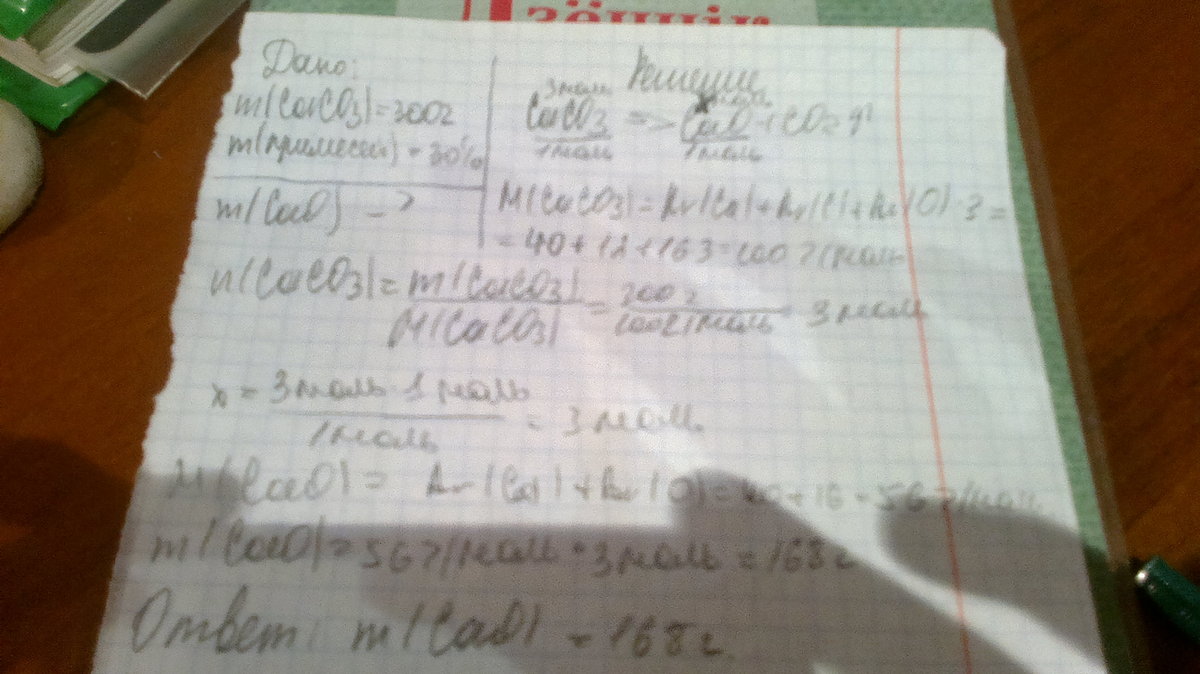 Дзённік
Дано:
m(CaCO3)=300г
m(примесей) = 30%
m(CaO) - ?
Решение
3моль
CaCO3 => CaO + CO2
1моль 1моль
M(CaCO3) = Ar(Ca) + Ar(C) + Ar(O) · 3 =
= 40 + 12 + 16·3 = 100 г/моль
n(CaCO3) = m(CaCO3) / M(CaCO3) = 300г / 100г/моль = 3 моль
x = 3 моль · 1 моль / 1 моль = 3 моль
M(CaO) = Ar(Ca) + Ar(O) = 40 + 16 = 56 г/моль
m(CaO) = 56 г/моль · 3 моль = 168 г
Ответ: m(CaO) = 168 г.